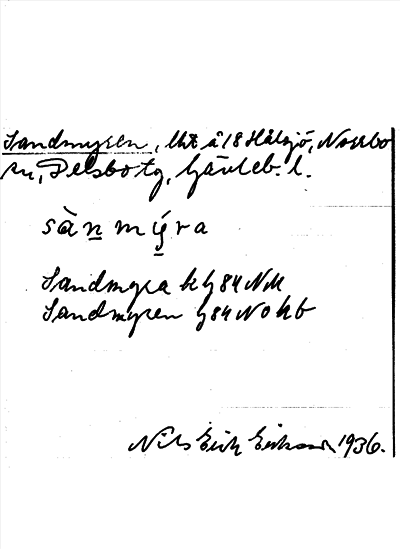 Sandmyren, lht å 18 Hålsjö, Norrbo
sn, Delsbo tg, Gävleb. l.
sànmý̱ra
Sandmyra k G 84 NM
Sandmyren G 84 NO kb
Nils Erik Eriksson 1936.